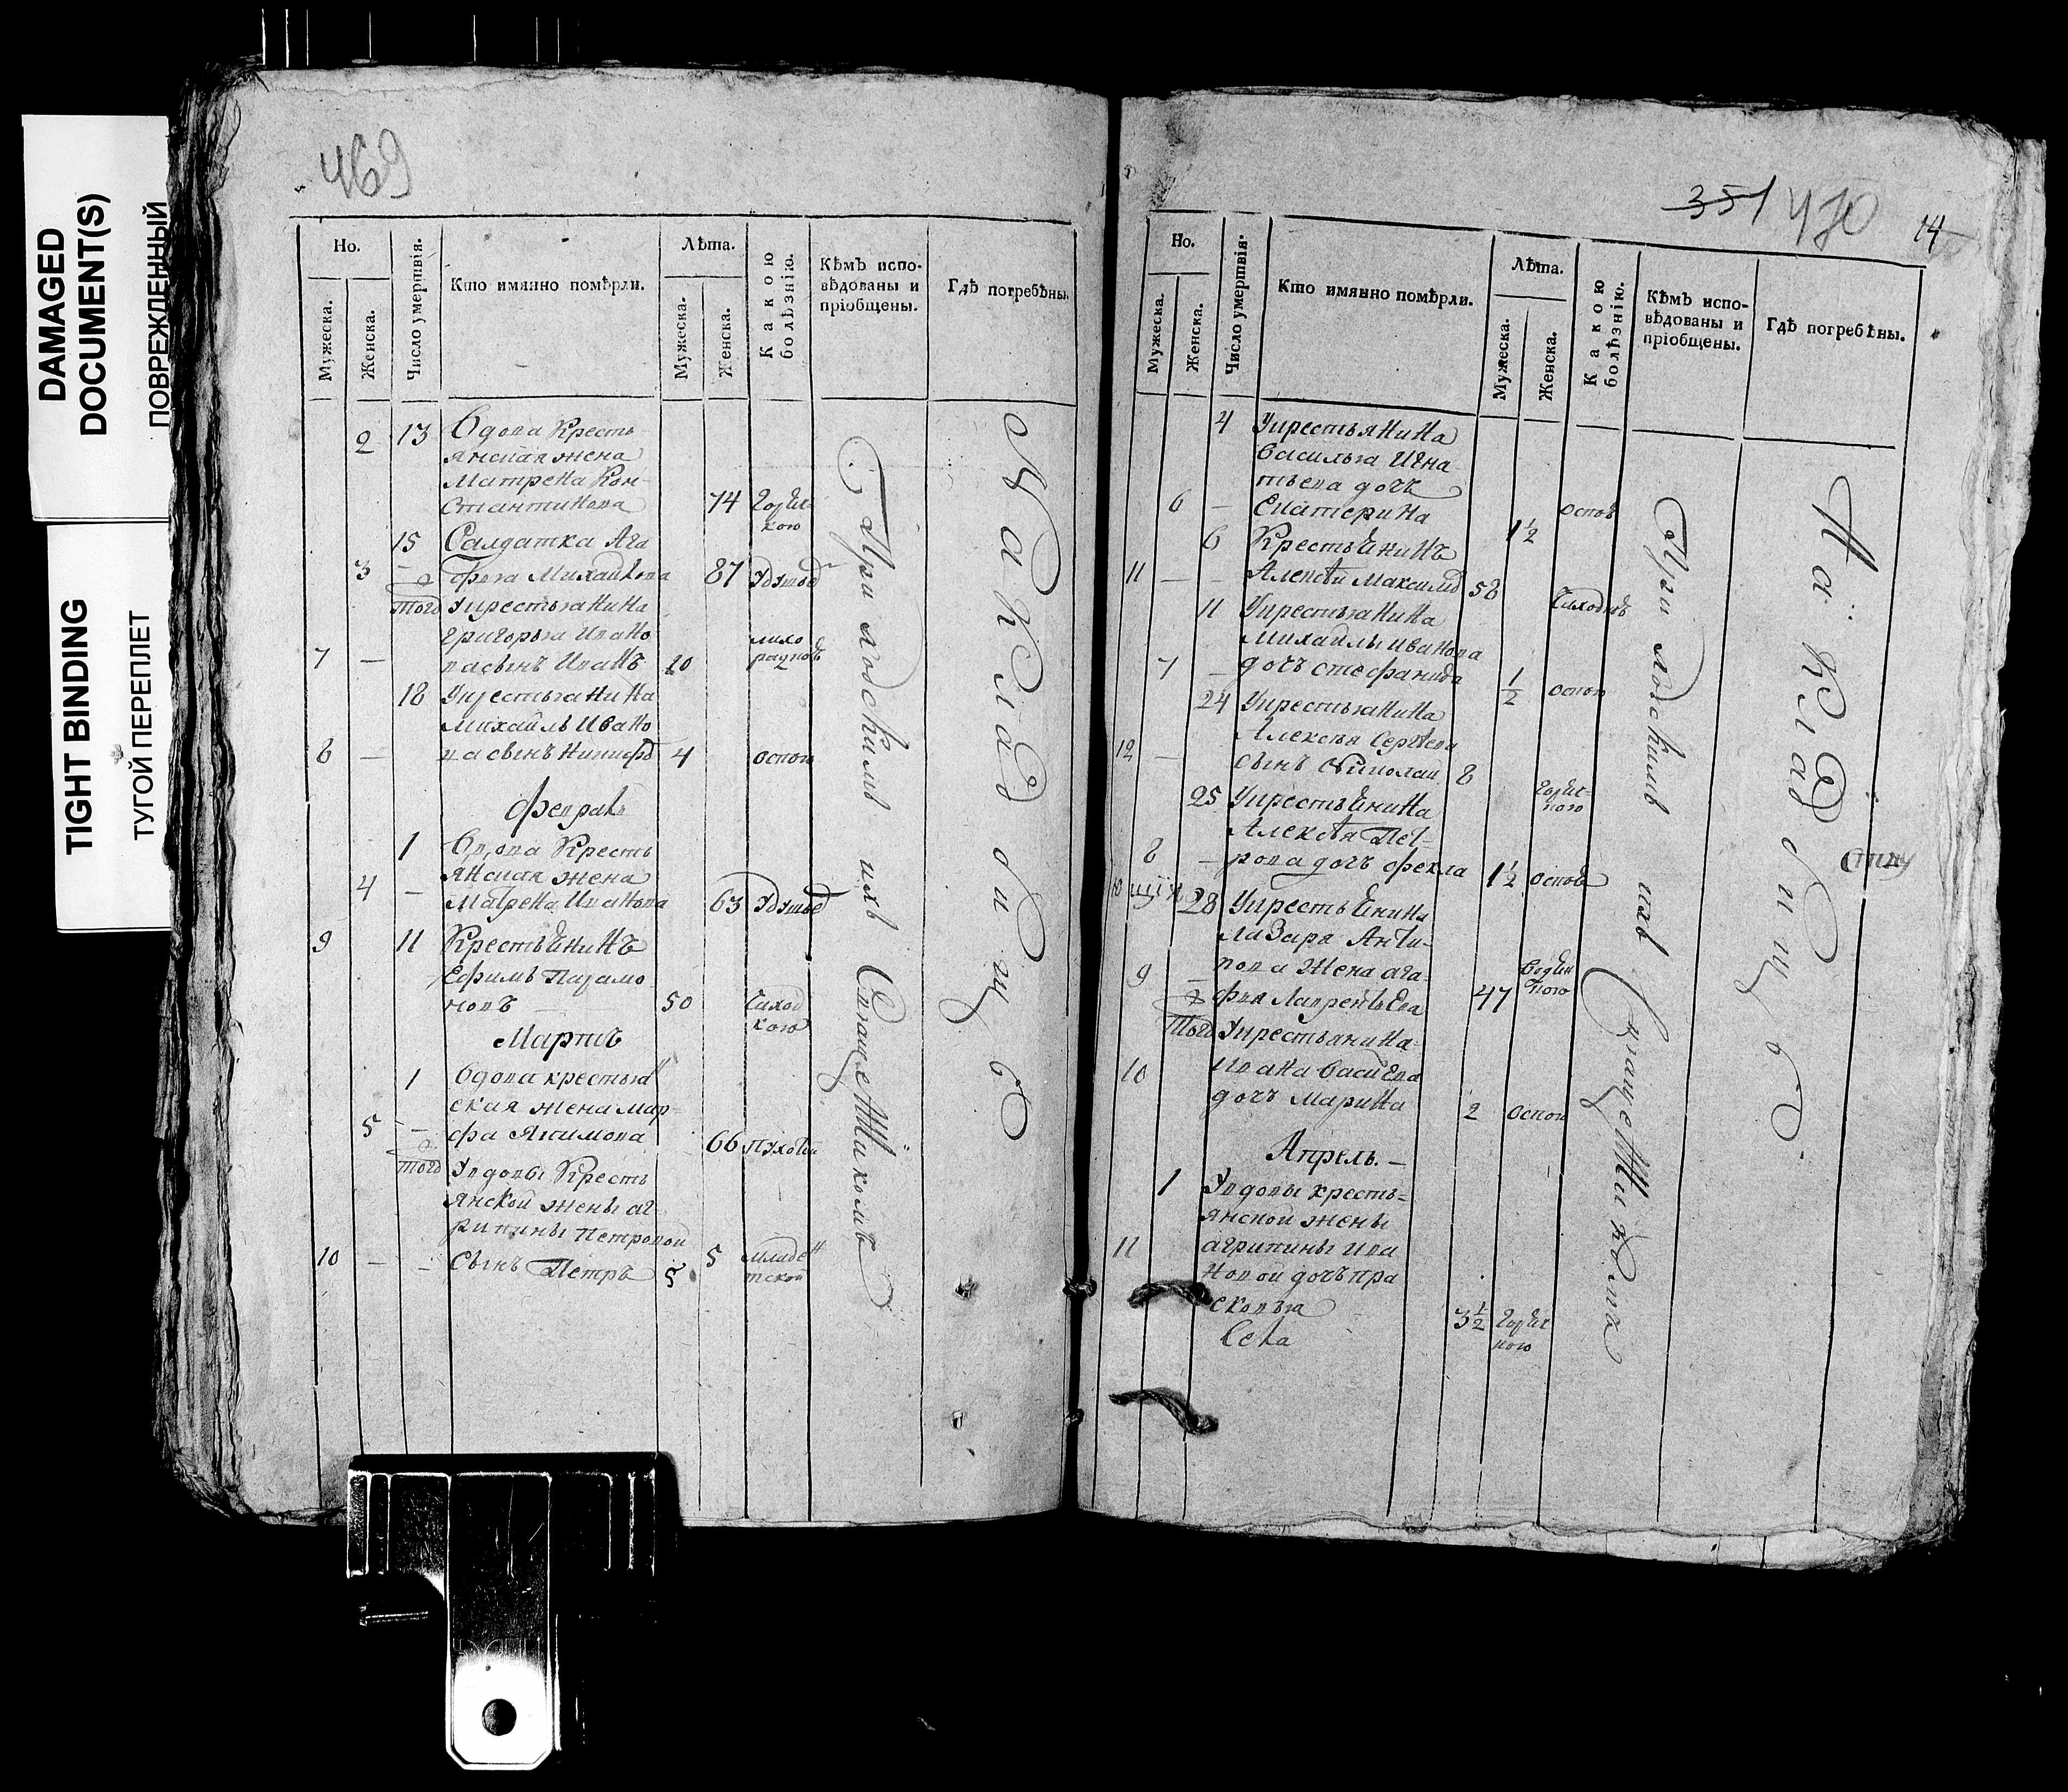 DAMAGED
DOCUMENT(S)
ПОВРЕЖДЕННЫЙ
TIGHT BINDING
ТУГОЙ ПЕРЕПЛЕТ
469
Но.
Мужеска.
Женска.
Число умертвія.
Кто имянно помѣрли.
Лѣта.
Мужеска.
Женска.
Какою болѣзнію.
Кѣмъ испо-
вѣдованы и
пріобщены.
Гдѣ погребѣны.
2 13 Вдова Кресть
янская жена
Матрена Кон-
стантинова 74 Горяч
кою
15 Салдатка Ага
3 — фьа Михайлова 87 Удушьѣ
того Укрестьянина
Григорьа Ивано
7 — ва сынъ Иванъ 20 лихо
радкоъ
18 Укрестьянина
Михайлы Ивано
8 — ва сынъ 4 оспою
Февраль
1 Вдова Кресть
янская жена
4 — Матрена Иванова 63 Удушьѣ
9 11 Крестьѣнинъ
Ефимъ Парамо
новъ 50 Чахот
кою
Мартъ
1 Вдова крестьян
ская жена Мар-
5 — фа Якимова 66
того Увдовы Кресть
янской жены аг
рипины Петровой
10 — — Сынъ Петръ 5 5 младен
тской
При градскимъ ихъ Священникомъ
На Кладбищѣ
351 470 14
Но.
Мужеска.
Женска.
Число умертвія.
Кто имянно помѣрли.
Лѣта.
Мужеска.
Женска.
Какою болѣзнію.
Кѣмъ испо-
вѣдованы и
пріобщены.
Гдѣ погребѣны.
4 Укрестьянина
Василья Игна
тьева дочъ
6 — Екатерина 1½ оспоѣ
6 Крестьѣнинъ
11 — Алексѣй Максимо 58
11 Укрестьянина
Михайлы Иванова
7 — дочъ Стефанида ½ оспою
24 Укрестьянина
Алексѣя Сергѣева
12 — сынъ Николай 8 Горяч-
кою
25 Укрестьѣнина
Алексѣя Пет-
8 — рова дочъ Фекла 1½ оспоѣ
28 Укрестьѣнина
Лазаря Анти-
9 — пова жена ага-
фья Лаврентьева 47 Водян
ною
того Укрестьянина
10 Ивана Васиѣва
дочъ Марина 2 оспою
Апрель. —
1 Увдовы кресть=
янской жены
11 агрипины Ива
новой дочъ пра
сковьа 3½ Горяч
кою
При градскимъ ихъ Священникомъ
На Кладбищѣ